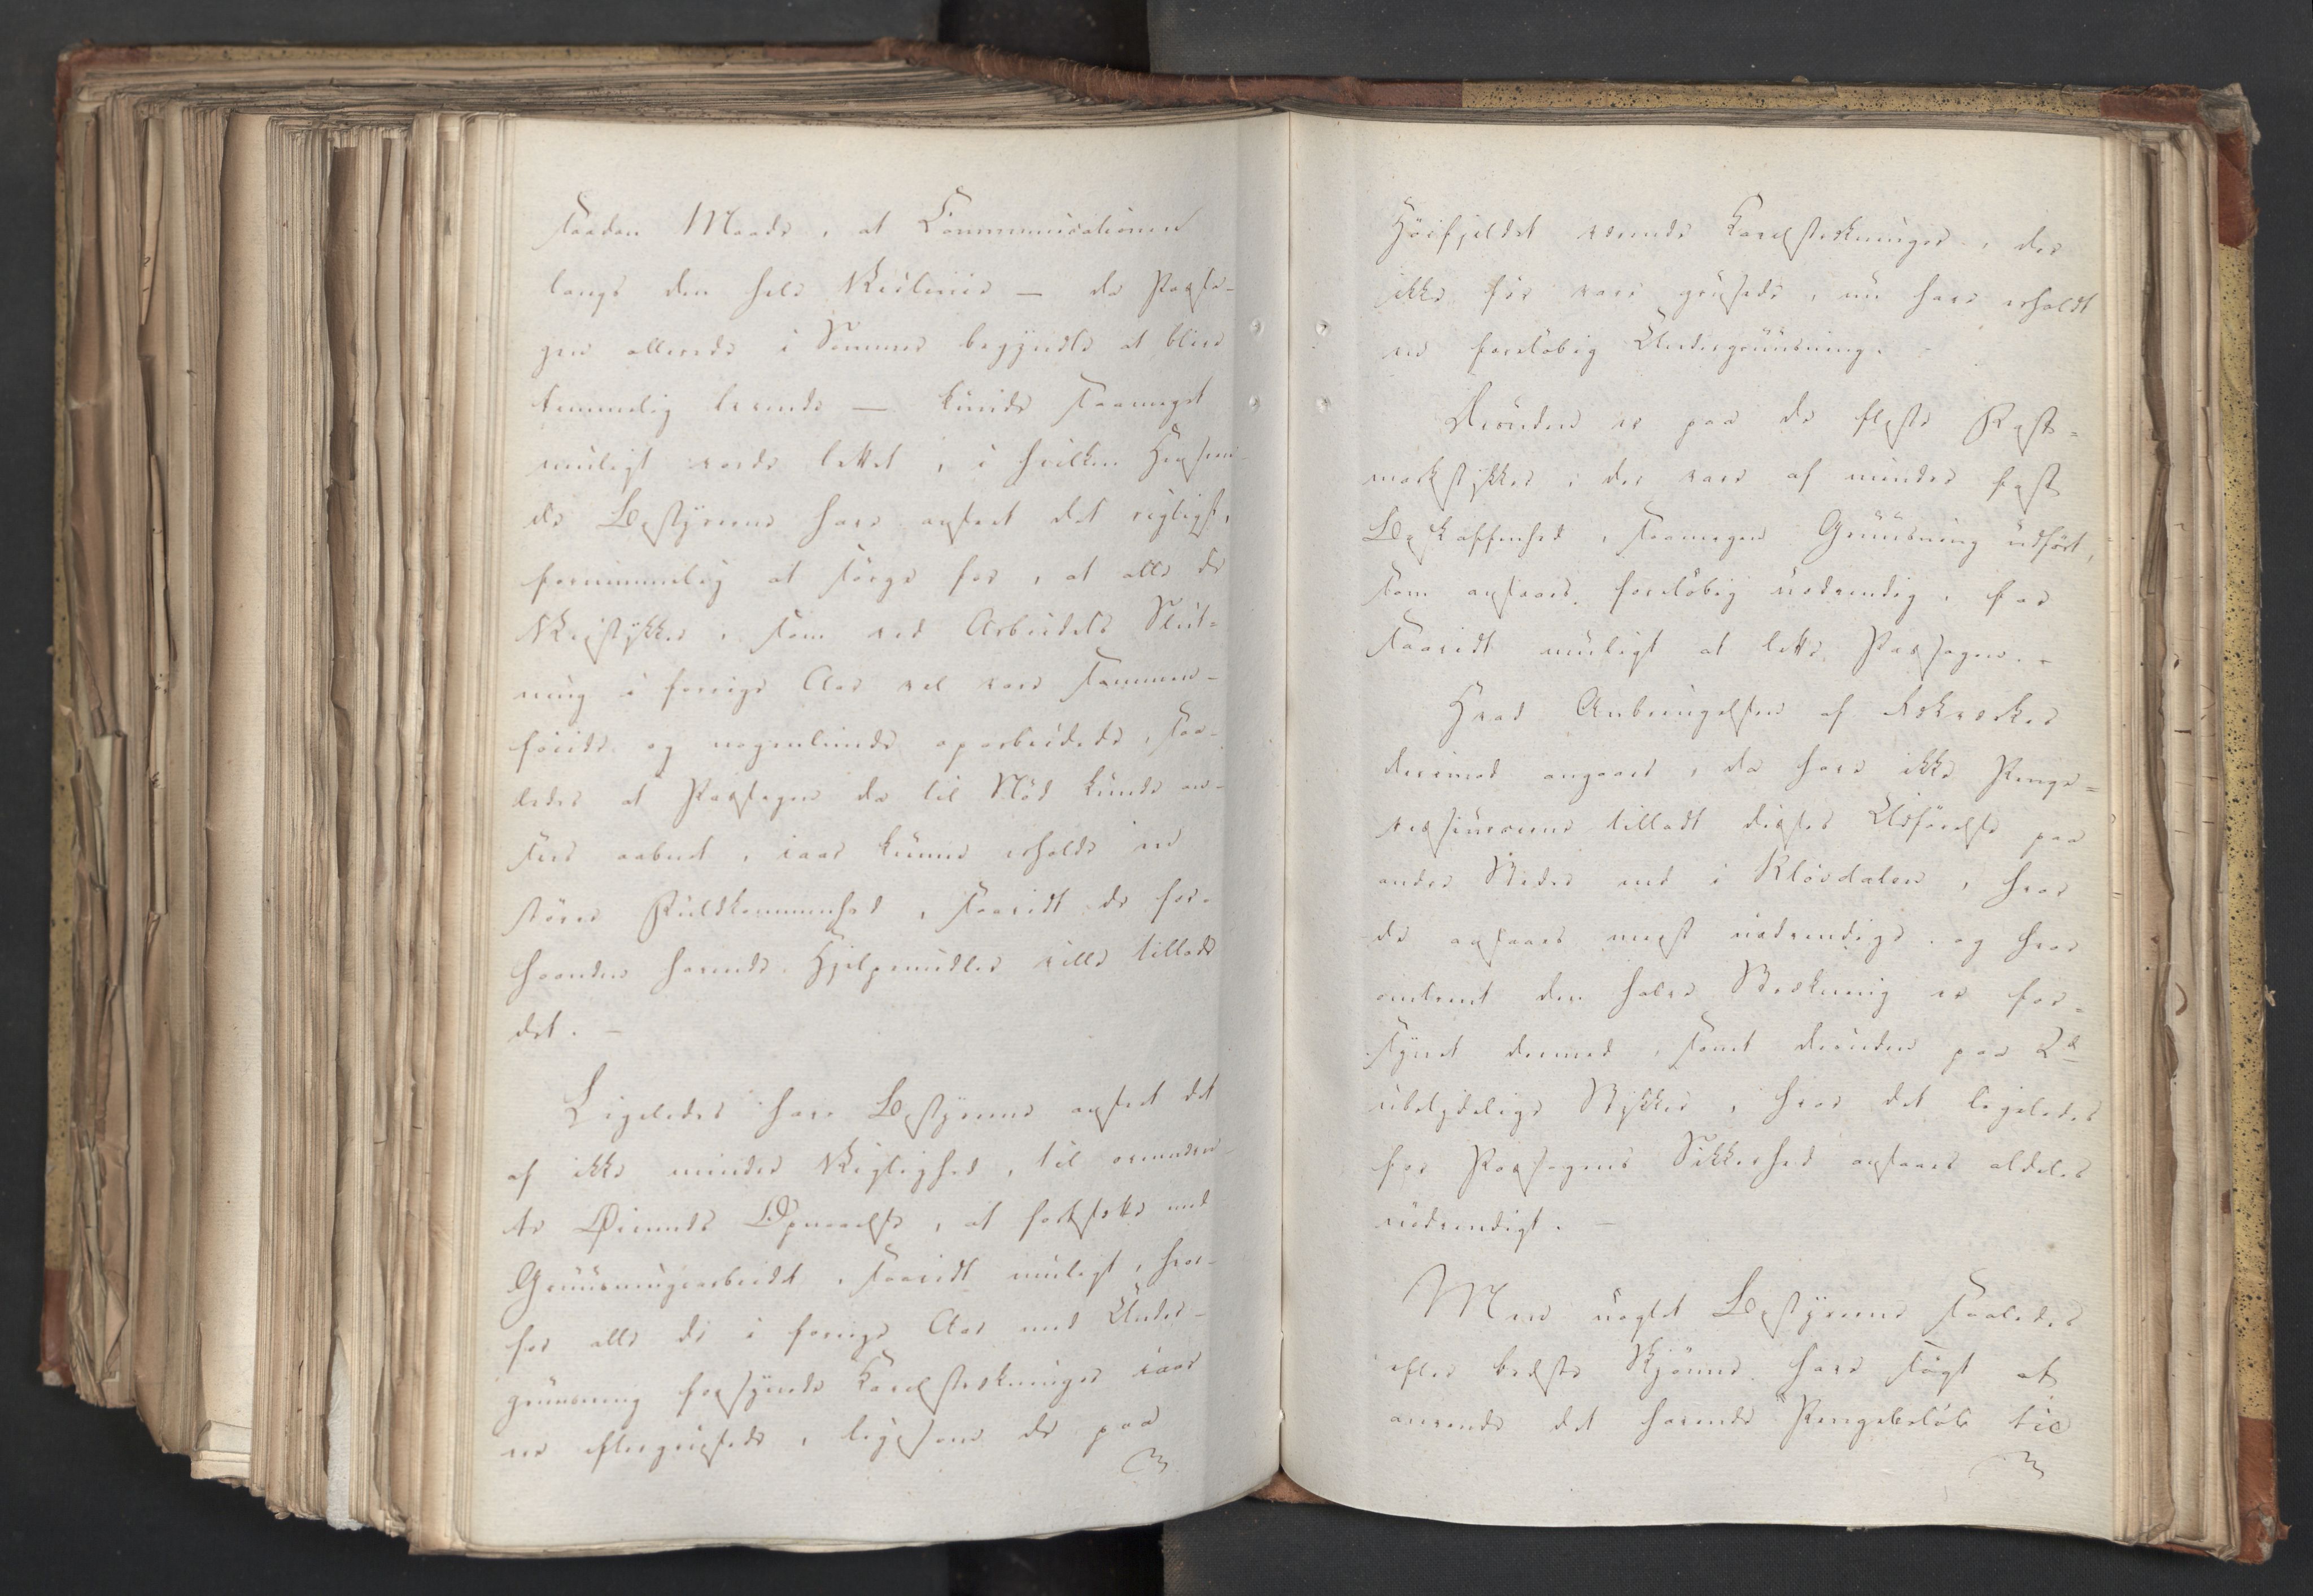 saadan Maade, at Communicationen
langs den hele Veilinie — da Passa-
gen allerede i Sommer begyndte at blive
temmelig levende — kunde saameget
muligt vorde lettet, i hvilken Hensee-
de Bestyreren have anseet det rigtigst,
fornemmelig at sörge for, at alle de
Veistykker, som ved Arbeidets Slut-
ning i forrige Aar vel vare sammen-
föiede og nogenlunde oparbeidede, saa-
ledes at Passagen da til Nöd kunde an-
sees aabnet, iaar kunne erholde en
större Fuldkommenhed, saavidt de for-
haanden havende Hjelpemidler ville tillade
det. —
Ligeledes have Bestyreren anseet det
af ikke mindre Vigtighed, til ovennævn-
te Öiemeds Opnaaelse, at fortsætte med
Gruusningsarbeidet, saavidt muligt, hvor-
for alle de i forrige Aar med Under-
gruusning forsynede Kavelstrækninger iaar
ere eftergrusede, ligesom de paa
Höifjeldet værende Kavelstrækninger, der
ikke för vare grusede, nu have erholdt
en forelöbig Undergruusning. —
Desuden er paa de fleste Rest-
markstykker, der vare af mindre fast
Beskaffenhed, saamegen Gruusning udfört,
som ansaaes forelöbig nödvendig, for
saavidt muligt at lette Passagen. —
Hvad Anbringelsen af Rækværker
derimod angaaer, da have ikke Penge-
ressourcerne tilladt disses Udförelse paa
andre Steder end i Klövdalen, hvor
de ansaaes meest nödvendige og hvor
omtrent den halve Strækning er for-
synet dermed, samt desuden paa 2de
ubetydelige Stykker, hvor det ligeledes
for Passagens Sikkerhed ansaaes aldeles
nödvendigt. —
Men uagtet Bestyreren saaledes
efter bedste Skjönne have sögt at
anvende det havende Pengebelöb til